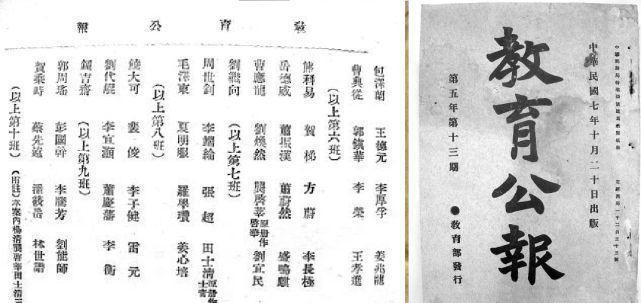 教育公報
包澤蘭 王德元 李厚孚 姜兆龍
曹典從 郭鎮華 李 榮 王孝
(以上第六班)
熊科易 賀 梯 方 蔚 李長極
岳德威 蕭振漢 蕭蔚然 盛鳴
曹應龍 劉煥然 龔啓 劉宜民
劉繼向 (以上第七班)
周世釗 李端綸 張 超 田士清
毛澤東 夏明服 羅學瓚 姜心培
(以上第八班)
饒大可 裴 俊 李子健 雷 元
劉代 李宜涵 蕭慶藩 李 衡
鍾吉齋 (以上第九班)
郭周瑤 彭圖幹 李騰芳 劉能師
賀秉時 蔡先遠 潘 林世譜
(以上第十班)
中華民國七年十月二十日出版
教育公報
第五年第十三期 ●教育部發行